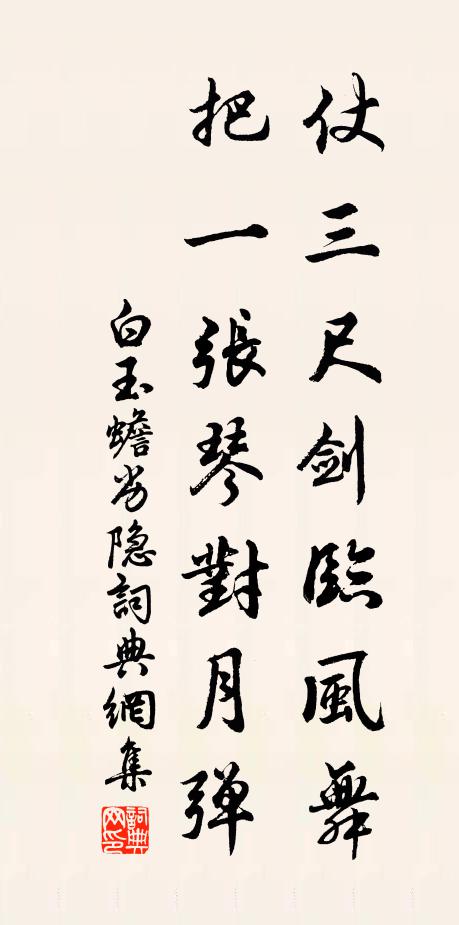 仗三尺劍臨風舞
把一張琴對月彈
白玉蟾労隐詞典網集
詞典網印